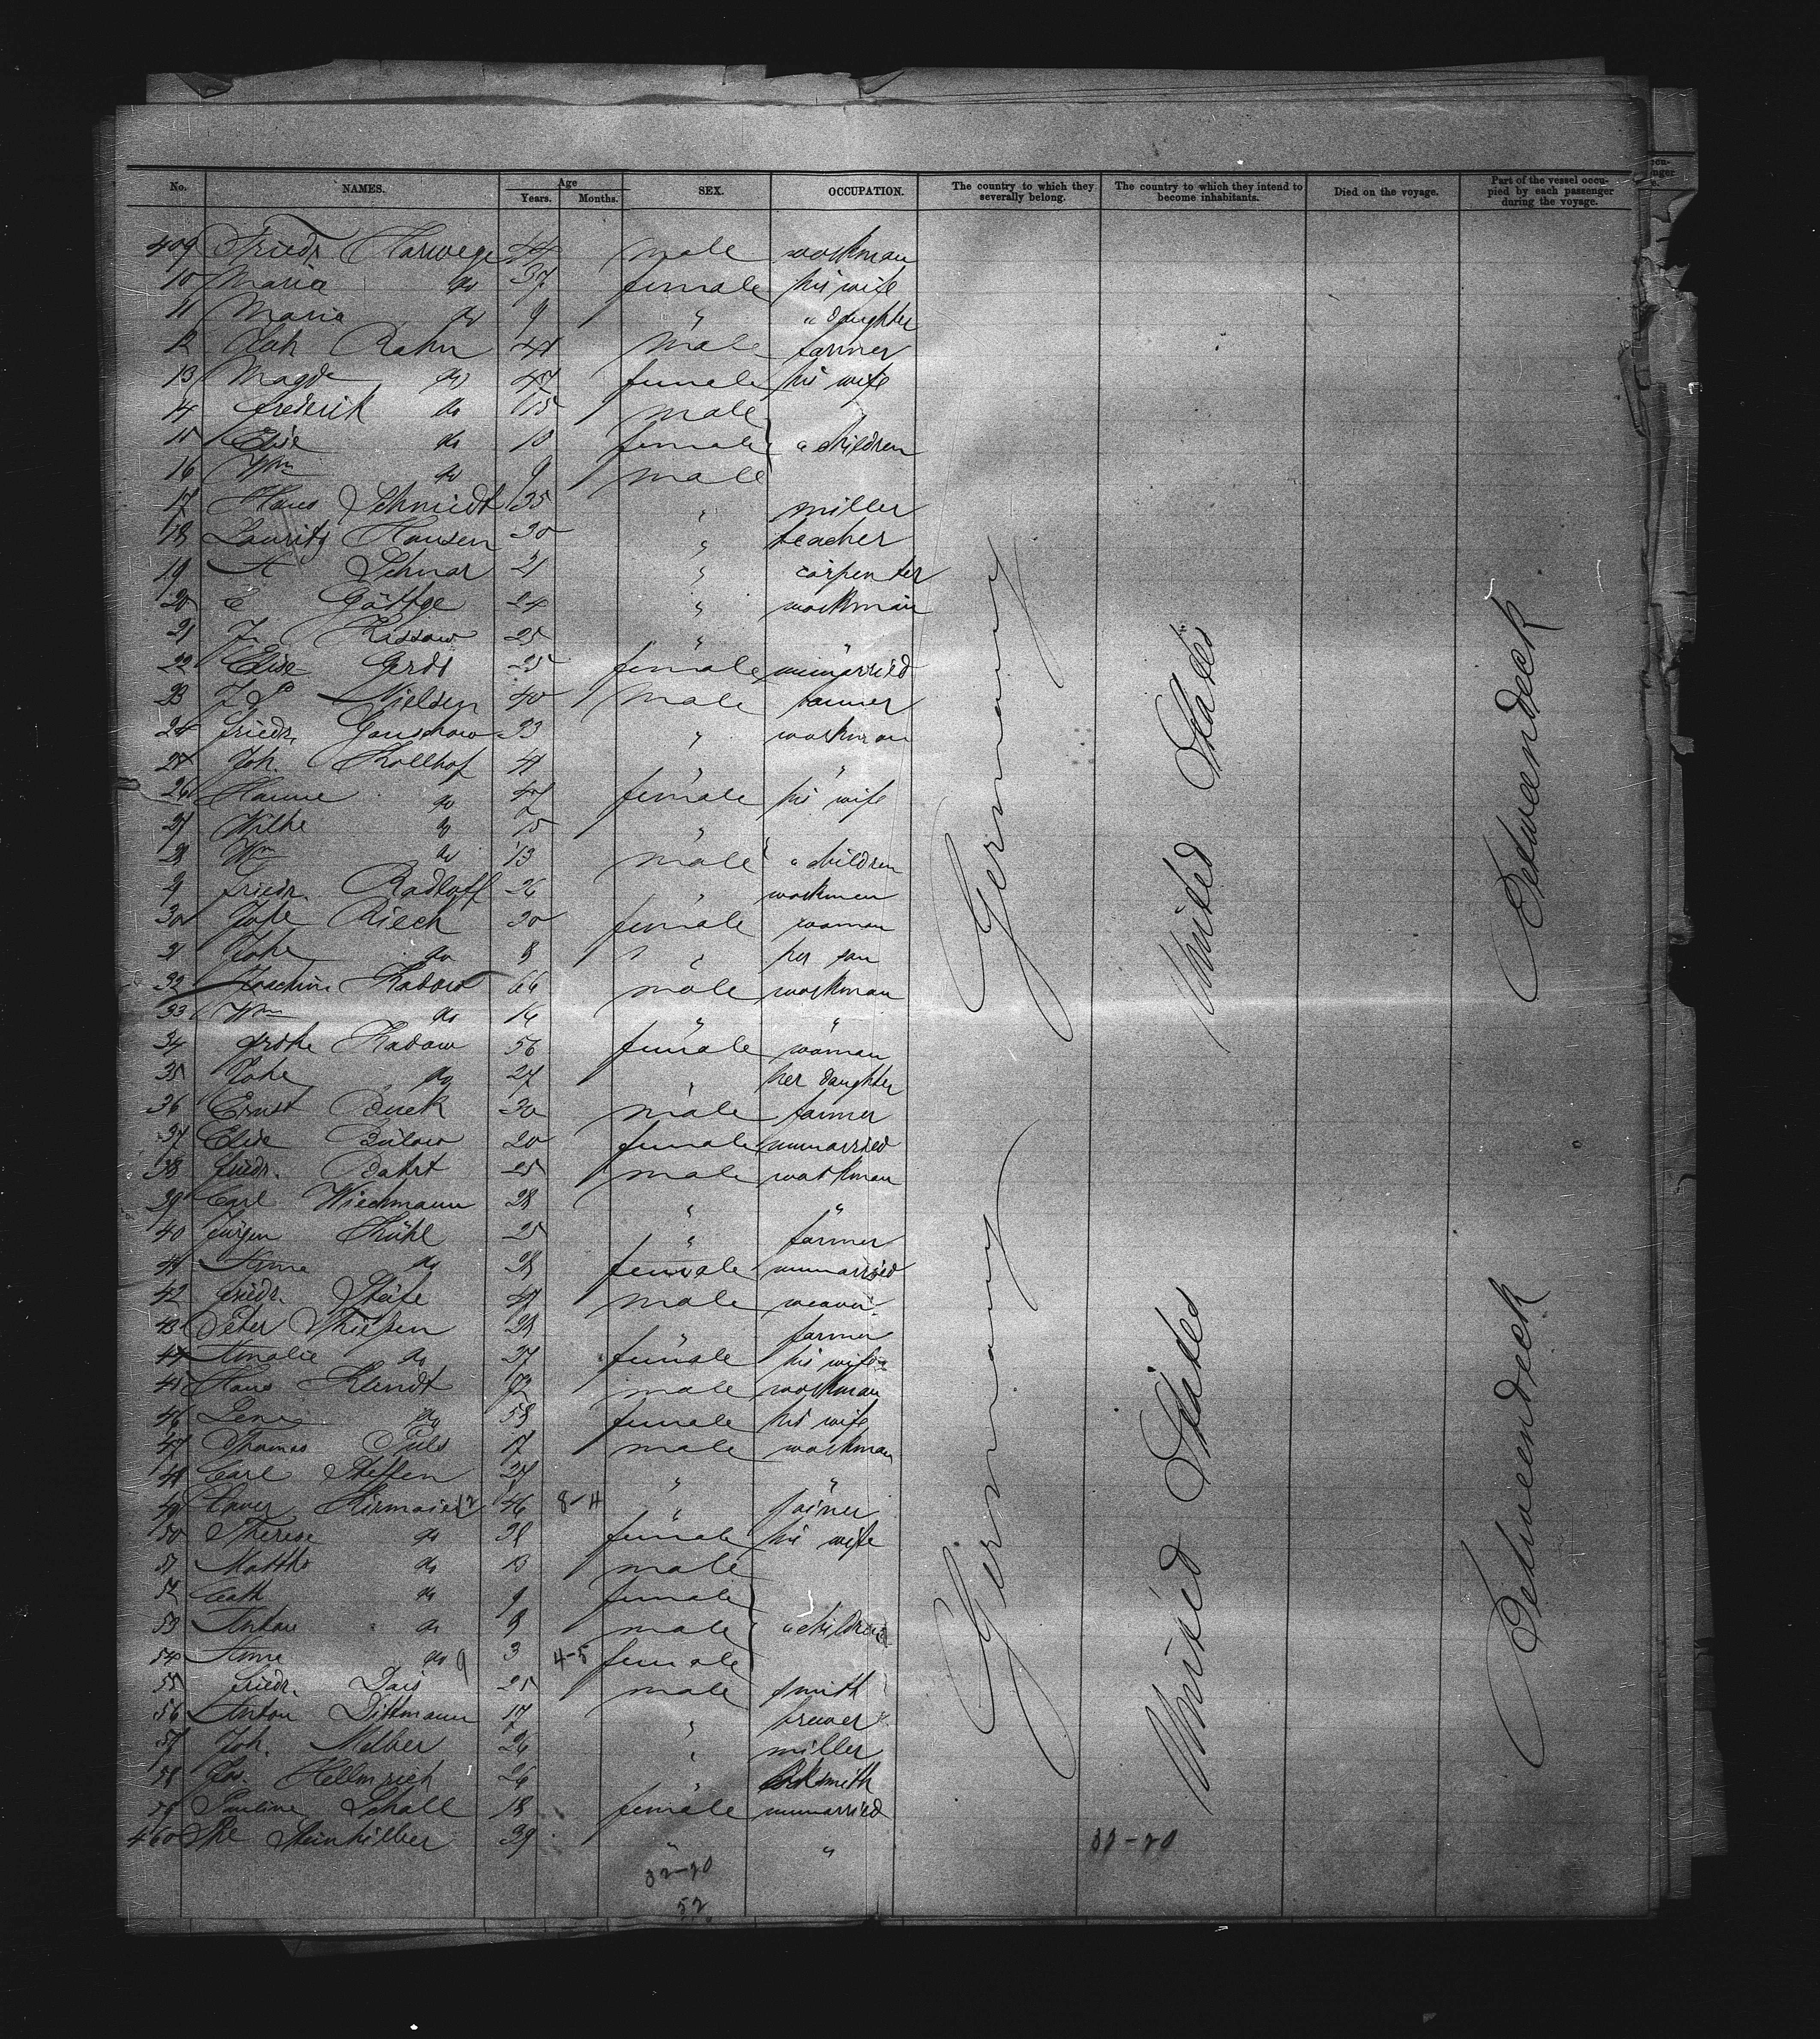 No. NAMES. Age Years. Months. SEX. OCCUPATION. The country to which they severally belong. The country to which they intend to become inhabitants. Died on the voyage. Part of the vessel occupied by each passenger during the voyage.
409 Friedr Harwege 44 male workman
10 Maria do 37 female his wife
11 Maria do 9 " " daughter
12 Joh Rahn 44 male farmer
13 Magda do 47 female his wife
14 Frederik do 15 male
15 Elise do 10 female " children
16 Wm do 9 male
17 Hans Schmidt 35 " miller
18 Lauritz Hansen 30 " teacher
19 A Schnar 21 " carpenter
20 C Göttge 24 " workman
21 J Kissow 25 " "
22 Elise Gerds 25 female unmarried
23 J P Nielsen 40 male farmer
24 Friedr. Ganschow 33 " workman
25 Joh. Kollhof 41 " "
26 Hanne do 47 female his wife
27 Wilhe do 15 "
28 Wm do 13 male " children
29 Friedr. Radloff 26 " workman
30 Riech 30 female woman
31 do 8 " her son
32 Joachim Radow 66 male workman
33 Wm do 16 " "
34 Radow 56 female woman
35 do 27 " her daughter
36 Ernst Buck 30 male farmer
37 Elise Bülow 20 female unmarried
38 Friedr. Bahrt 25 male workman
39 Carl Wiechmann 28 " "
40 Jürgen Kühl 25 " farmer
41 Anna do 28 female unmarried
42 Friedr. 47 male weaver
43 Peter Thiessen 28 " farmer
44 Amalie do 27 female his wife
45 Hans Klindt 72 male workman
46 Lena do 58 female his wife
47 Thomas Puls 17 male workman
48 Carl Steffen 27 " "
49 Xaver Kirmaier 46 8-4 " joiner
50 Therese do 38 female his wife
51 Matths do 13 male
52 Cath do 9 female
53 Anton do 8 male " children
54 Anna do 9 3 4-5 female
55 Friedr. Dais 25 male smith
56 Anton Dittmann 17 " brewer
57 Joh. Melber 26 " miller
58 Jos. Hellmrich 26 " smith
59 Pauline Schall 18 female unmarried
460 Steinhilber 39 " "
Germany United States Betweendeck
Germany United States Betweendeck
32-20
32-20
52